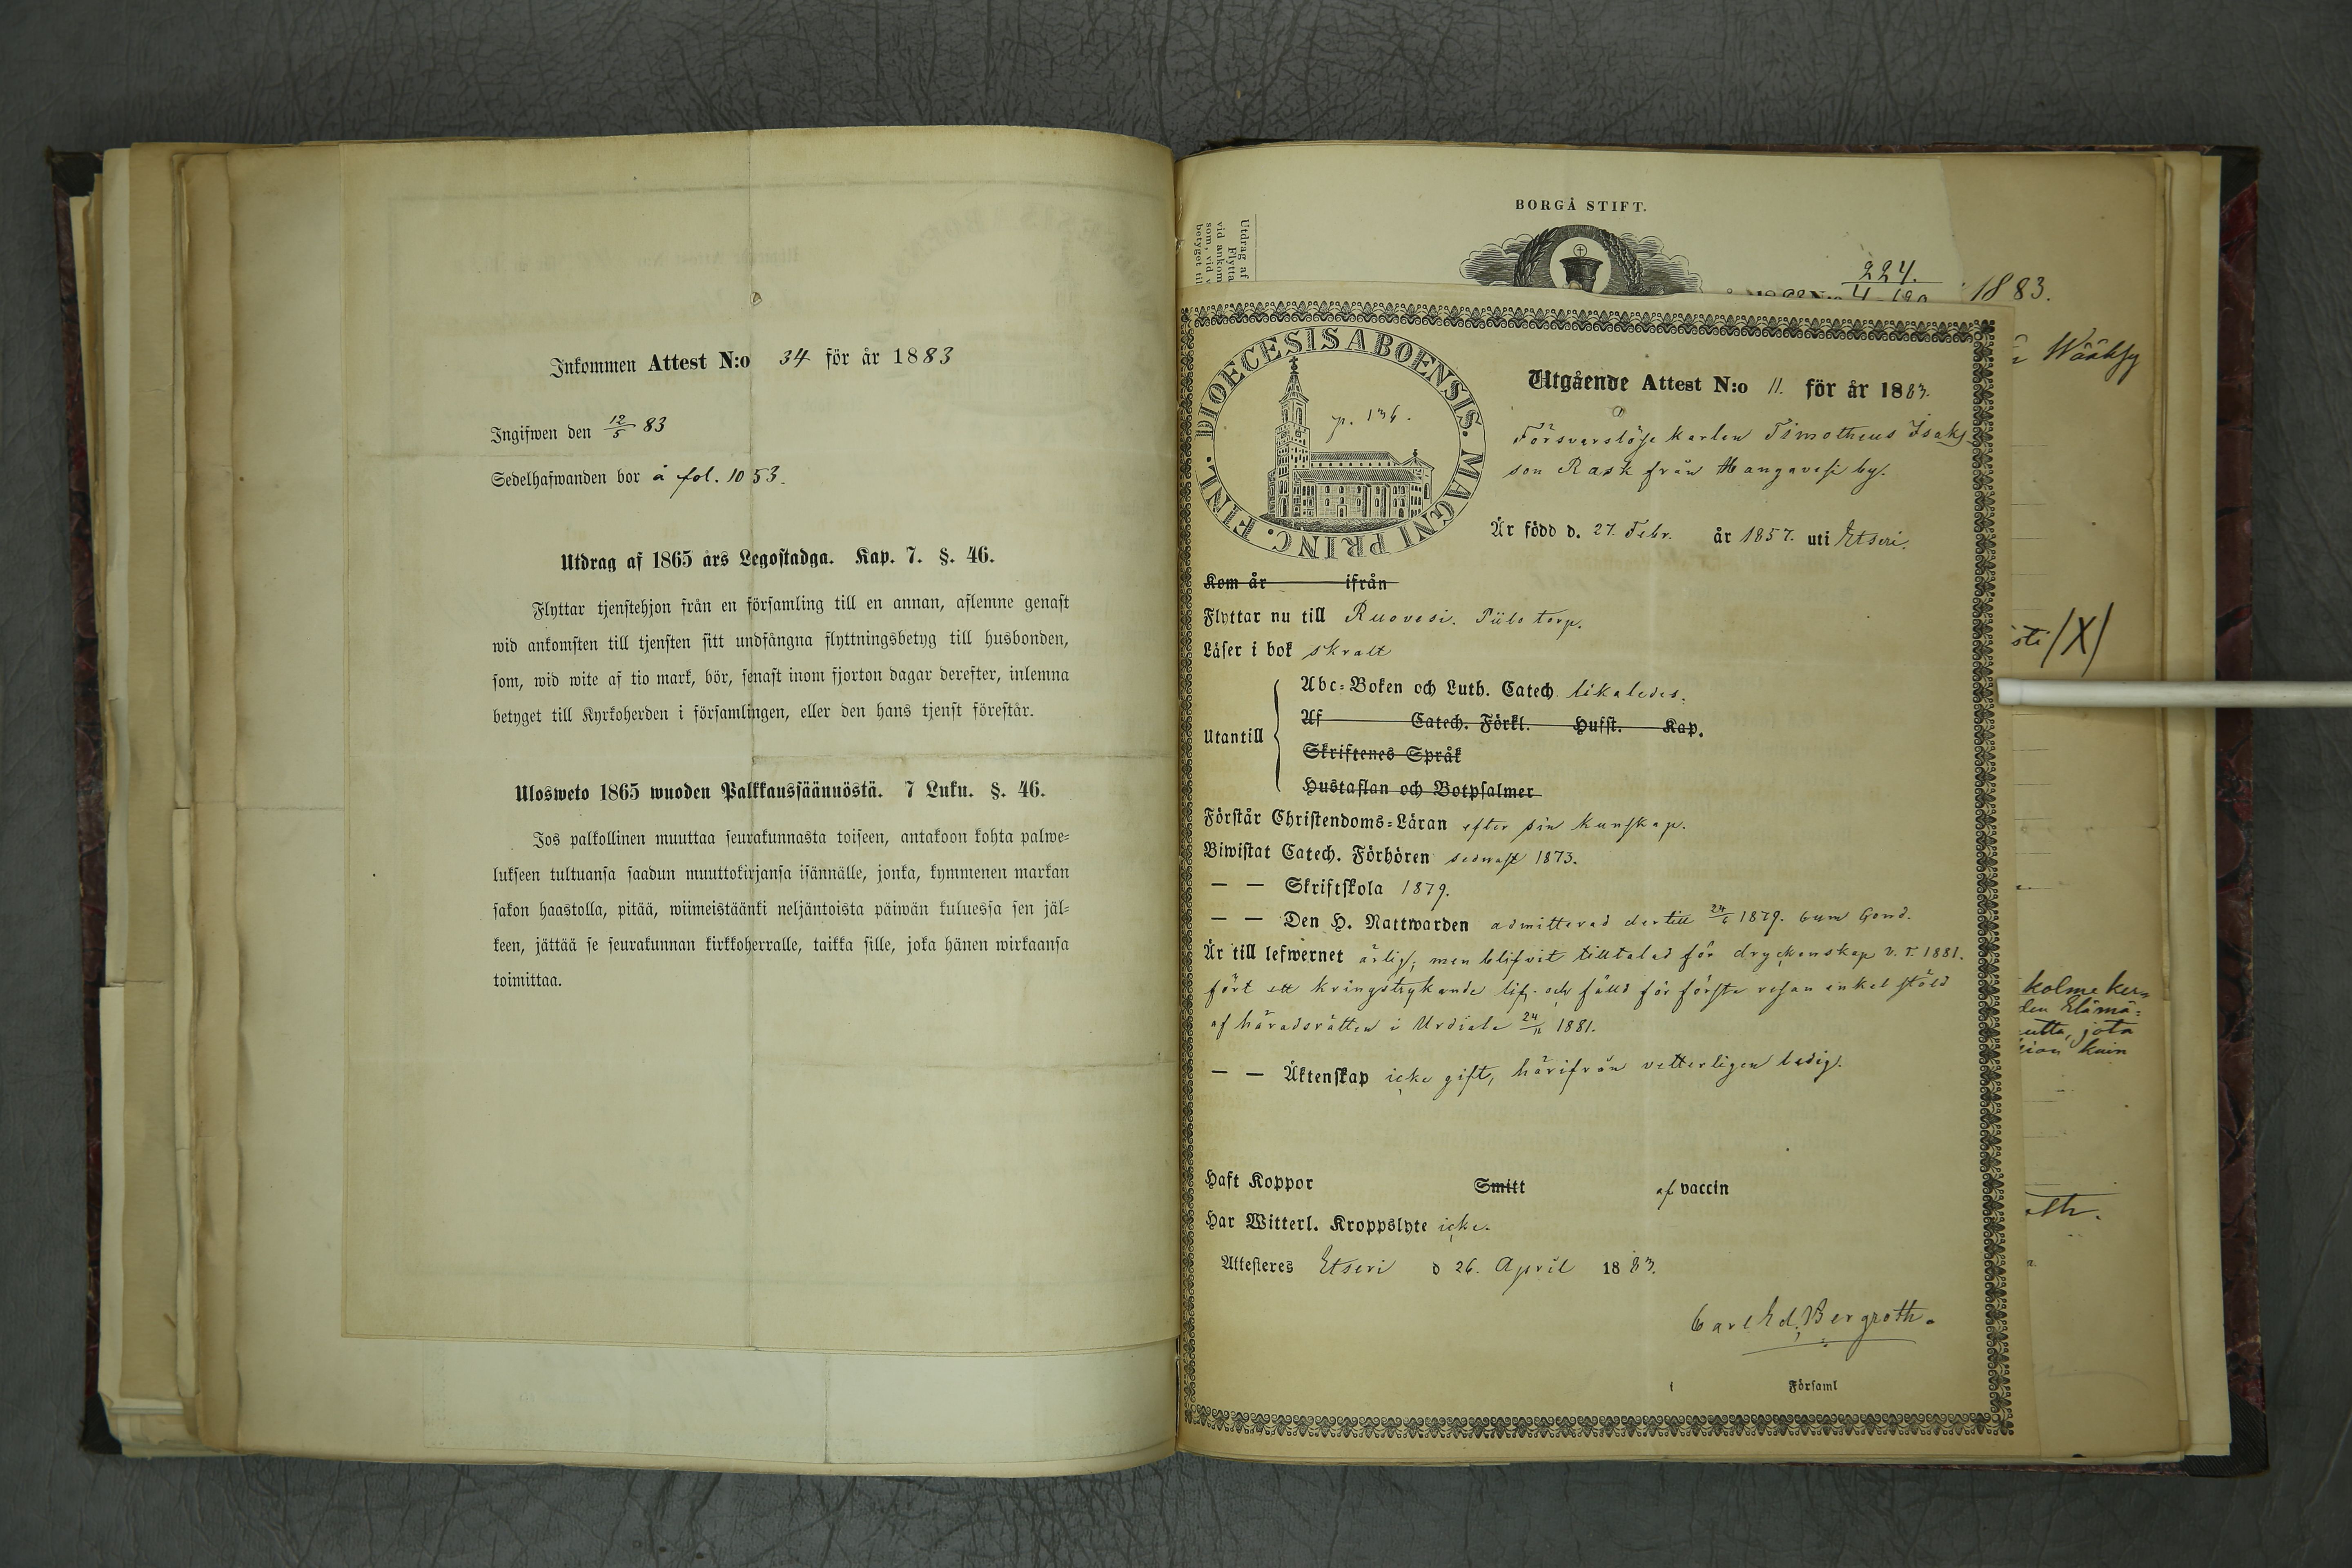 Inkommen Attest N:o 34 för år 1883
Ingifwen den 12/5 83
Sedelhafwanden bor å fol. 1053.
Utdrag af 1865 års Legostadga. Kap. 7. §. 46.
Flyttar tjenstehjon från en församling till en annan, aflemne genast
wid ankomsten till tjensten sitt undfångna flyttningsbetyg till husbonden,
som, wid wite af tio mark, bör, senast inom fjorton dagar derefter, inlemna
betyget till Kyrkoherden i församlingen, eller den hans tjenst förestår.
Ulosweto 1865 wuoden Palkkaussäännöstä. 7 Luku. §. 46.
Jos palkollinen muuttaa seurakunnasta toiseen, antakoon kohta palwe=
lukseen tultuansa saadun muuttokirjansa isännälle, jonka, kymmenen markan
sakon haastolla, pitää, wiimeistäänki neljäntoista päiwän kuluessa sen jäl=
keen, jättää se seurakunnan kirkkoherralle, taikka sille, joka hänen wirkaansa
toimittaa.
BORGÅ STIFT.
Utdrag af
Flytta
vid ankom
som, vid v
betyget til
224.
1883.
DIOECESIS ABOENSIS. MAGNI PRINC. FINL.
p. 136.
Utgående Attest N:o 11. för år 1883.
Försvarslöse karlen Timotheus Isaks
son Rask från Hangavesi by.
Är född d. 27. Febr. år 1857. uti Etseri.
Kom år ifrån
Flyttar nu till Ruovesi. Piilo torp.
Läser i bok skralt
Utantill
Abc=Boken och Luth. Catech. likaledes.
Af Catech. Förkl. Hufst. Kap.
Skriftenes Språk
Hustaflan och Botpsalmer
Förstår Christendoms=Läran efter sin kunskap.
Biwistat Catech. Förhören sednast 1873.
— — Skriftskola 1879.
— — Den H. Nattwarden admitterad dertill 24/6 1879. cum Cond.
Är till lefwernet ärlig, men blifvit tilltalad för dryckenskap v. T. 1881.
fört ett kringstrykande lif. och fälld för första resan enkel stöld
af häradsrätten i Urdiala 24/11 1881.
— — Äktenskap icke gift, härifrån vetterligen ledig.
Haft Koppor Smitt af vaccin
Har Witterl. Kroppslyte icke.
Attesteres Etseri d 26. April 1883.
Carl Ed. Bergroth.
i Församl
Wääksy
sti /X/
kolme ker
den Elämä=
utta, jota
kuin